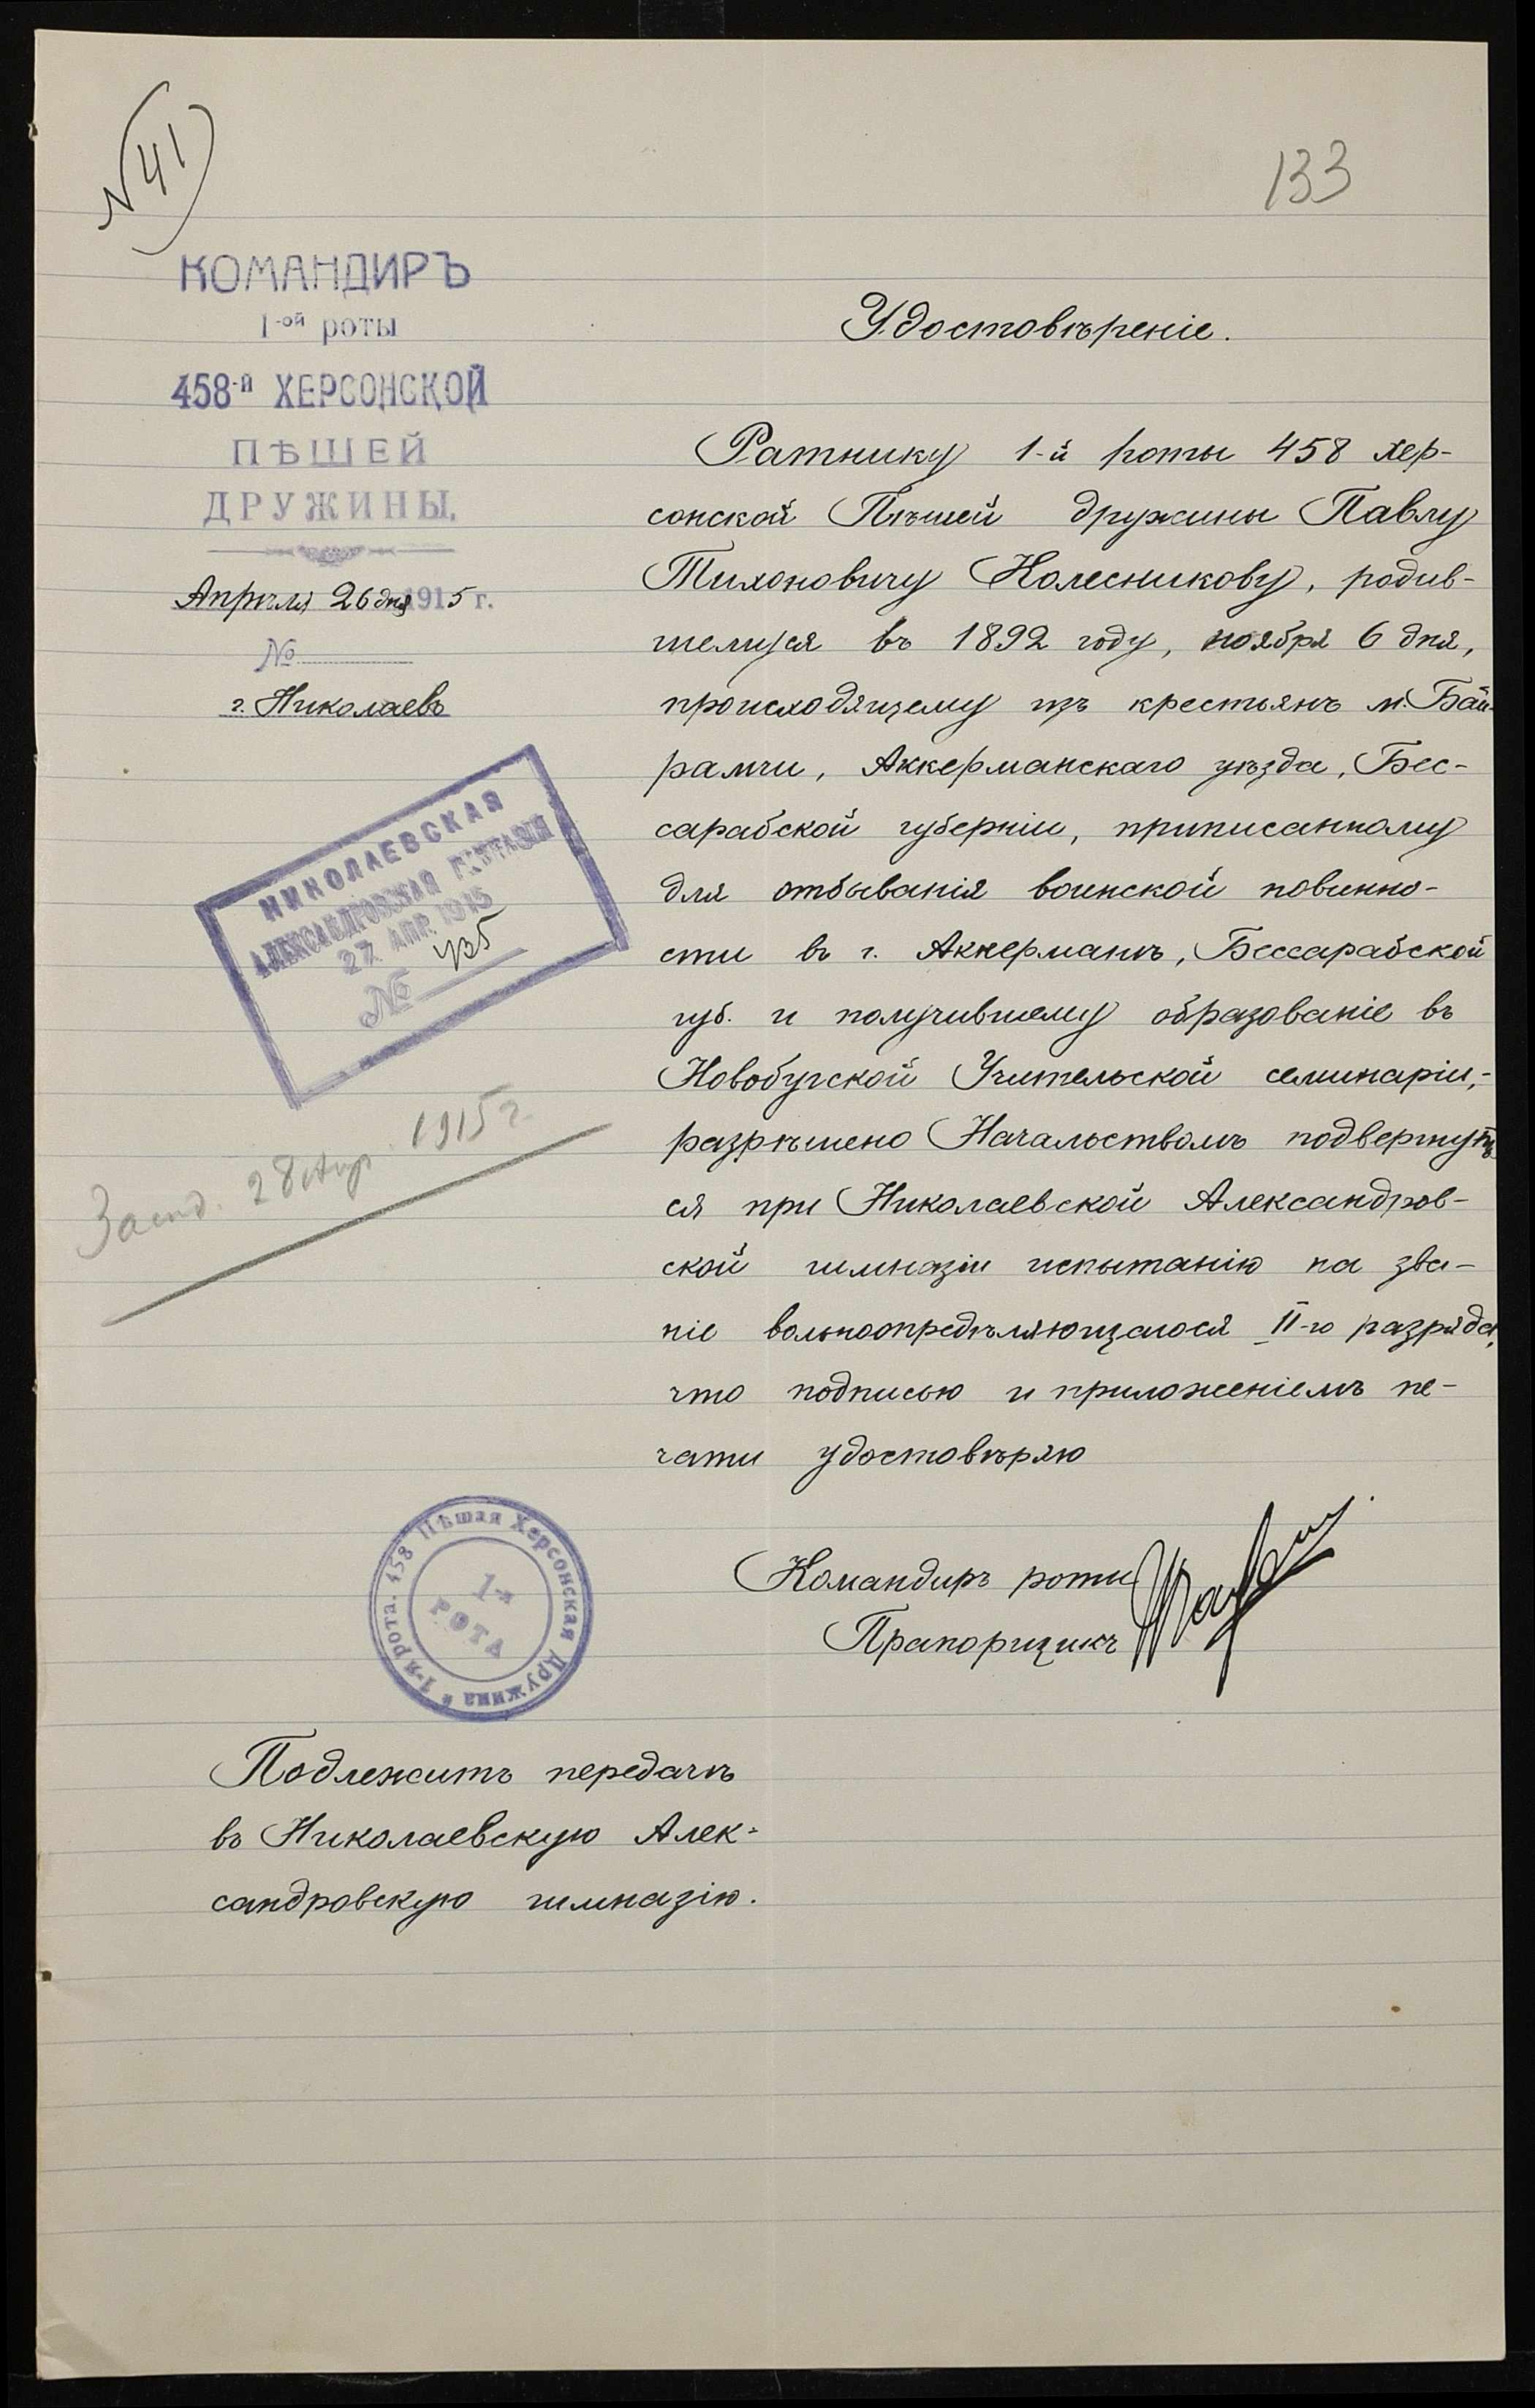 № 41
133
КОМАНДИРЪ
1-ой роты
458-й ХЕРСОНСКОЙ
ПѢШЕЙ
ДРУЖИНЫ.
Апрѣля 26 дня 1915 г.
№
г. Николаевъ
НИКОЛАЕВСКАЯ
АЛЕКСАНДРОВСКАЯ ГИМНАЗІЯ
27 АПР. 1915
№
28 Апр. 1915 г.
Удостовѣреніе.
Ратнику 1-й роты 458 хер-
сонской Пѣшей дружины Павлу
Тихоновичу Колесникову, родив-
шемуся въ 1892 году, ноября 6 дня,
происходящему изъ крестьянъ м. Бай-
рамчи, Аккерманскаго уѣзда, Бес-
сарабской губерніи, приписанному
для отбыванія воинской повинно-
сти въ г. Аккерманѣ, Бессарабской
губ. и получившему образованіе въ
Новобугской Учительской семинаріи,-
разрѣшено Начальствомъ подвергнуть
ся при Николаевской Александров-
ской гимназіи испытанію на зва-
ніе вольноопредѣляющагося II-го разряда,
что подписью и приложеніемъ пе-
чати удостовѣряю
Командиръ роты
Прапорщикъ
1-я рота. 458 Пѣшая Херсонская Дружина *
1-я
РОТА
Подлежитъ передачѣ
въ Николаевскую Алек-
сандровскую гимназію.